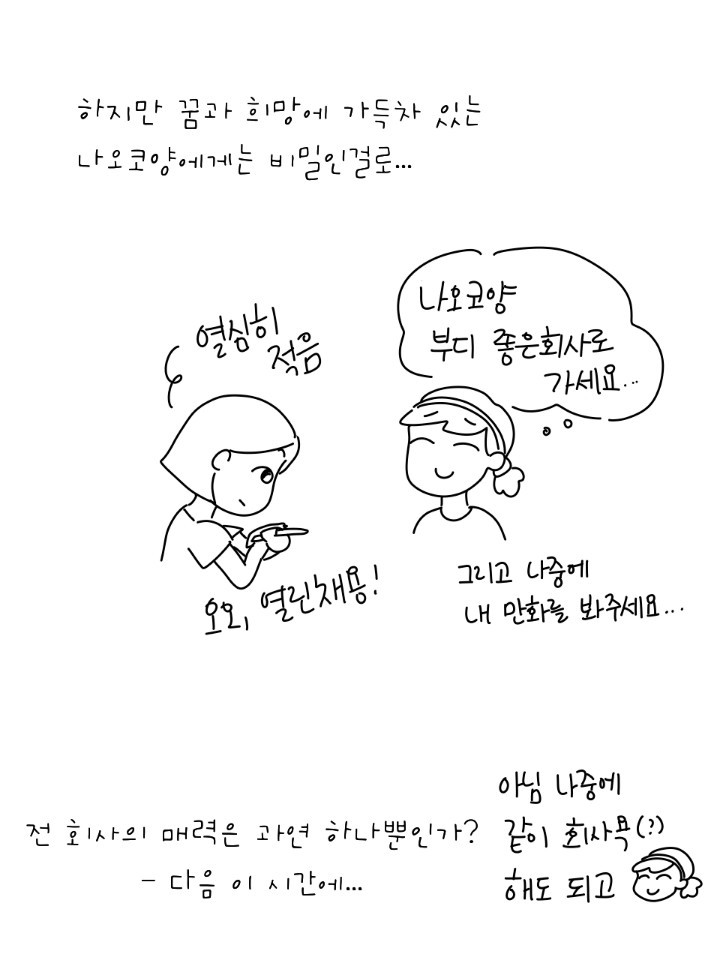 하지만 꿈과 희망에 가득차 있는
나오코양에게는 비밀인걸로...
열심히
적음
나오코양
부디 좋은회사로
가세요...
오오, 열린채용!
그리고 나중에
내 만화를 봐주세요...
전 회사의 매력은 과연 하나뿐인가?
- 다음 이 시간에...
아님 나중에
같이 회사욕(?)
해도 되고